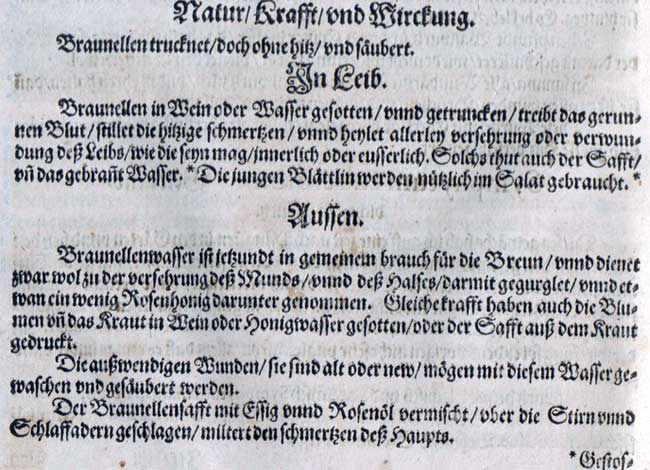 Natur/ Krafft/ vnd Wirckung.
Braunellen trucknet/ doch ohne hitz/ vnd säubert.
In Leib.
Braunellen in Wein oder Wasser gesotten/ vnnd getruncken/ treibt das gerun-
nen Blut/ stillet die hitzige schmertzen/ vnnd heylet allerley versehrung oder verwun-
dung deß Leibs/ wie die seyn mag/ innerlich oder eusserlich. Solchs thut auch der Safft/
vñ das gebrañt Wasser. * Die jungen Blättlin werden nützlich im Salat gebraucht. *
Aussen.
Braunellenwasser ist jetzundt in gemeinem brauch für die Breun/ vnnd dienet
zwar wol zu der versehrung deß Munds/ vnnd deß Halses/ darmit gegurglet/ vnnd et-
wan ein wenig Rosenhonig darunter genommen. Gleiche krafft haben auch die Blu-
men vñ das Kraut in Wein oder Honigwasser gesotten/ oder der Safft auß dem Kraut
gedruckt.
Die außwendigen Wunden/ sie sind alt oder new/ mögen mit diesem Wasser ge-
waschen vnd gesäubert werden.
Der Braunellensafft mit Essig vnnd Rosenöl vermischt/ vber die Stirn vnnd
Schlaffadern geschlagen/ miltert den schmertzen deß Haupts.
* Gestos-